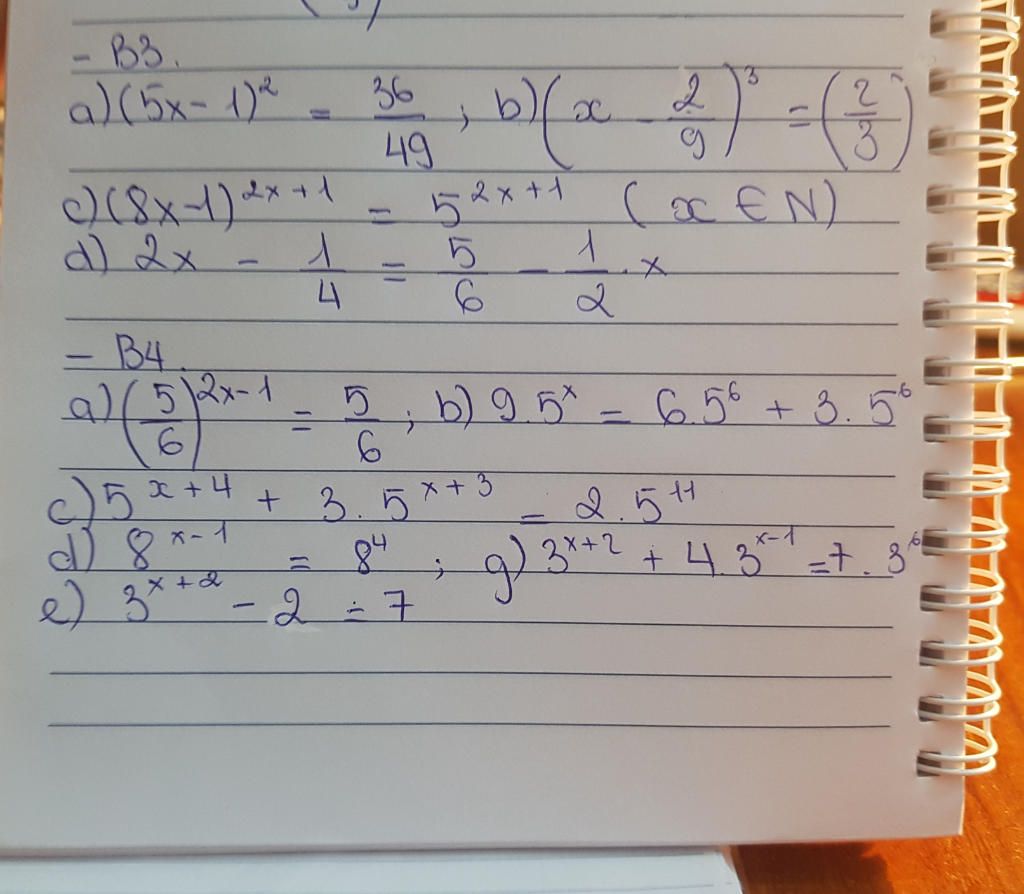 - B3.
a) (5x-1)² = 36/49 ; b) (x - 2/9)³ = (2/3)
c) (8x-1)^{2x+1} = 5^{2x+1} (x ∈ N)
d) 2x - 1/4 = 5/6 - 1/2 . x
- B4.
a) (5/6)^{2x-1} = 5/6 ; b) 9.5^x = 6.5⁶ + 3.5⁶
c) 5^{x+4} + 3.5^{x+3} = 2.5^{11}
d) 8^{x-1} = 8⁴ ; g) 3^{x+2} + 4.3^{x-1} = 7.3⁶
e) 3^{x+2} - 2 = 7